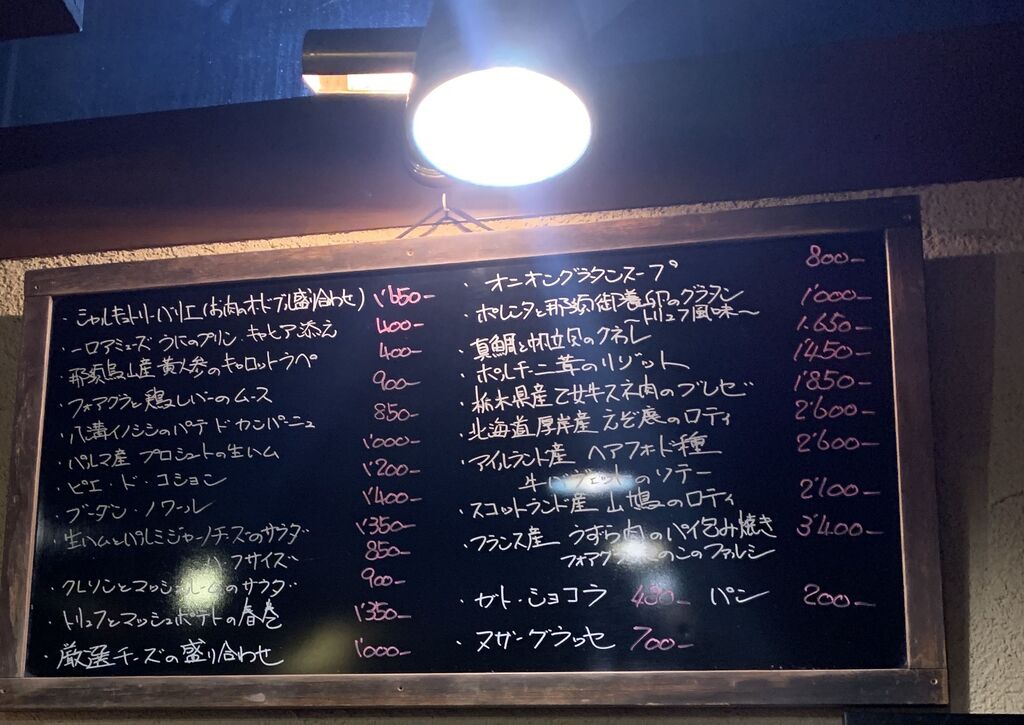 ・シャルキュトリーバリエ(お肉のオードブル盛り合わせ) 1'650-
・一口アミューズ うにのプリン・キャビア添え 400-
・那須烏山産 黄人参のキャロットラペ 400-
・フォアグラと鶏レバーのムース 900-
・八溝イノシシのパテ ド カンパーニュ 850-
・パルマ産 プロシュートの生ハム 1'000-
・ピエ・ド・コション 1'200-
・ブーダン・ノワール 1'400-
・生ハムとパルミジャーノチーズのサラダ 1'350-
ハーフサイズ 850-
・クレソンとマッシュルームのサラダ 900-
・トリュフとマッシュポテトの春巻 1'350-
・厳選チーズの盛り合わせ 1'000-
・オニオングラタンスープ 800-
・ポレンタと那須御養卵のグラタン 1'000-
トリュフ風味〜
・真鯛と帆立貝のクネル 1.650-
・ポルチーニ茸のリゾット 1'450-
・栃木県産 乙女牛スネ肉のブレゼ 1'850-
・北海道厚岸産 えぞ鹿のロティ 2'600-
・アイルランド産 ヘアフォード種 2'600-
牛バヴェットのソテー
・スコットランド産 山鳩のロティ 2'100-
・フランス産 うずら肉のパイ包み焼き 3'400-
フォアグラ のこのファルシ
・ガトーショコラ 430- パン 200-
・ヌガーグラッセ 700-